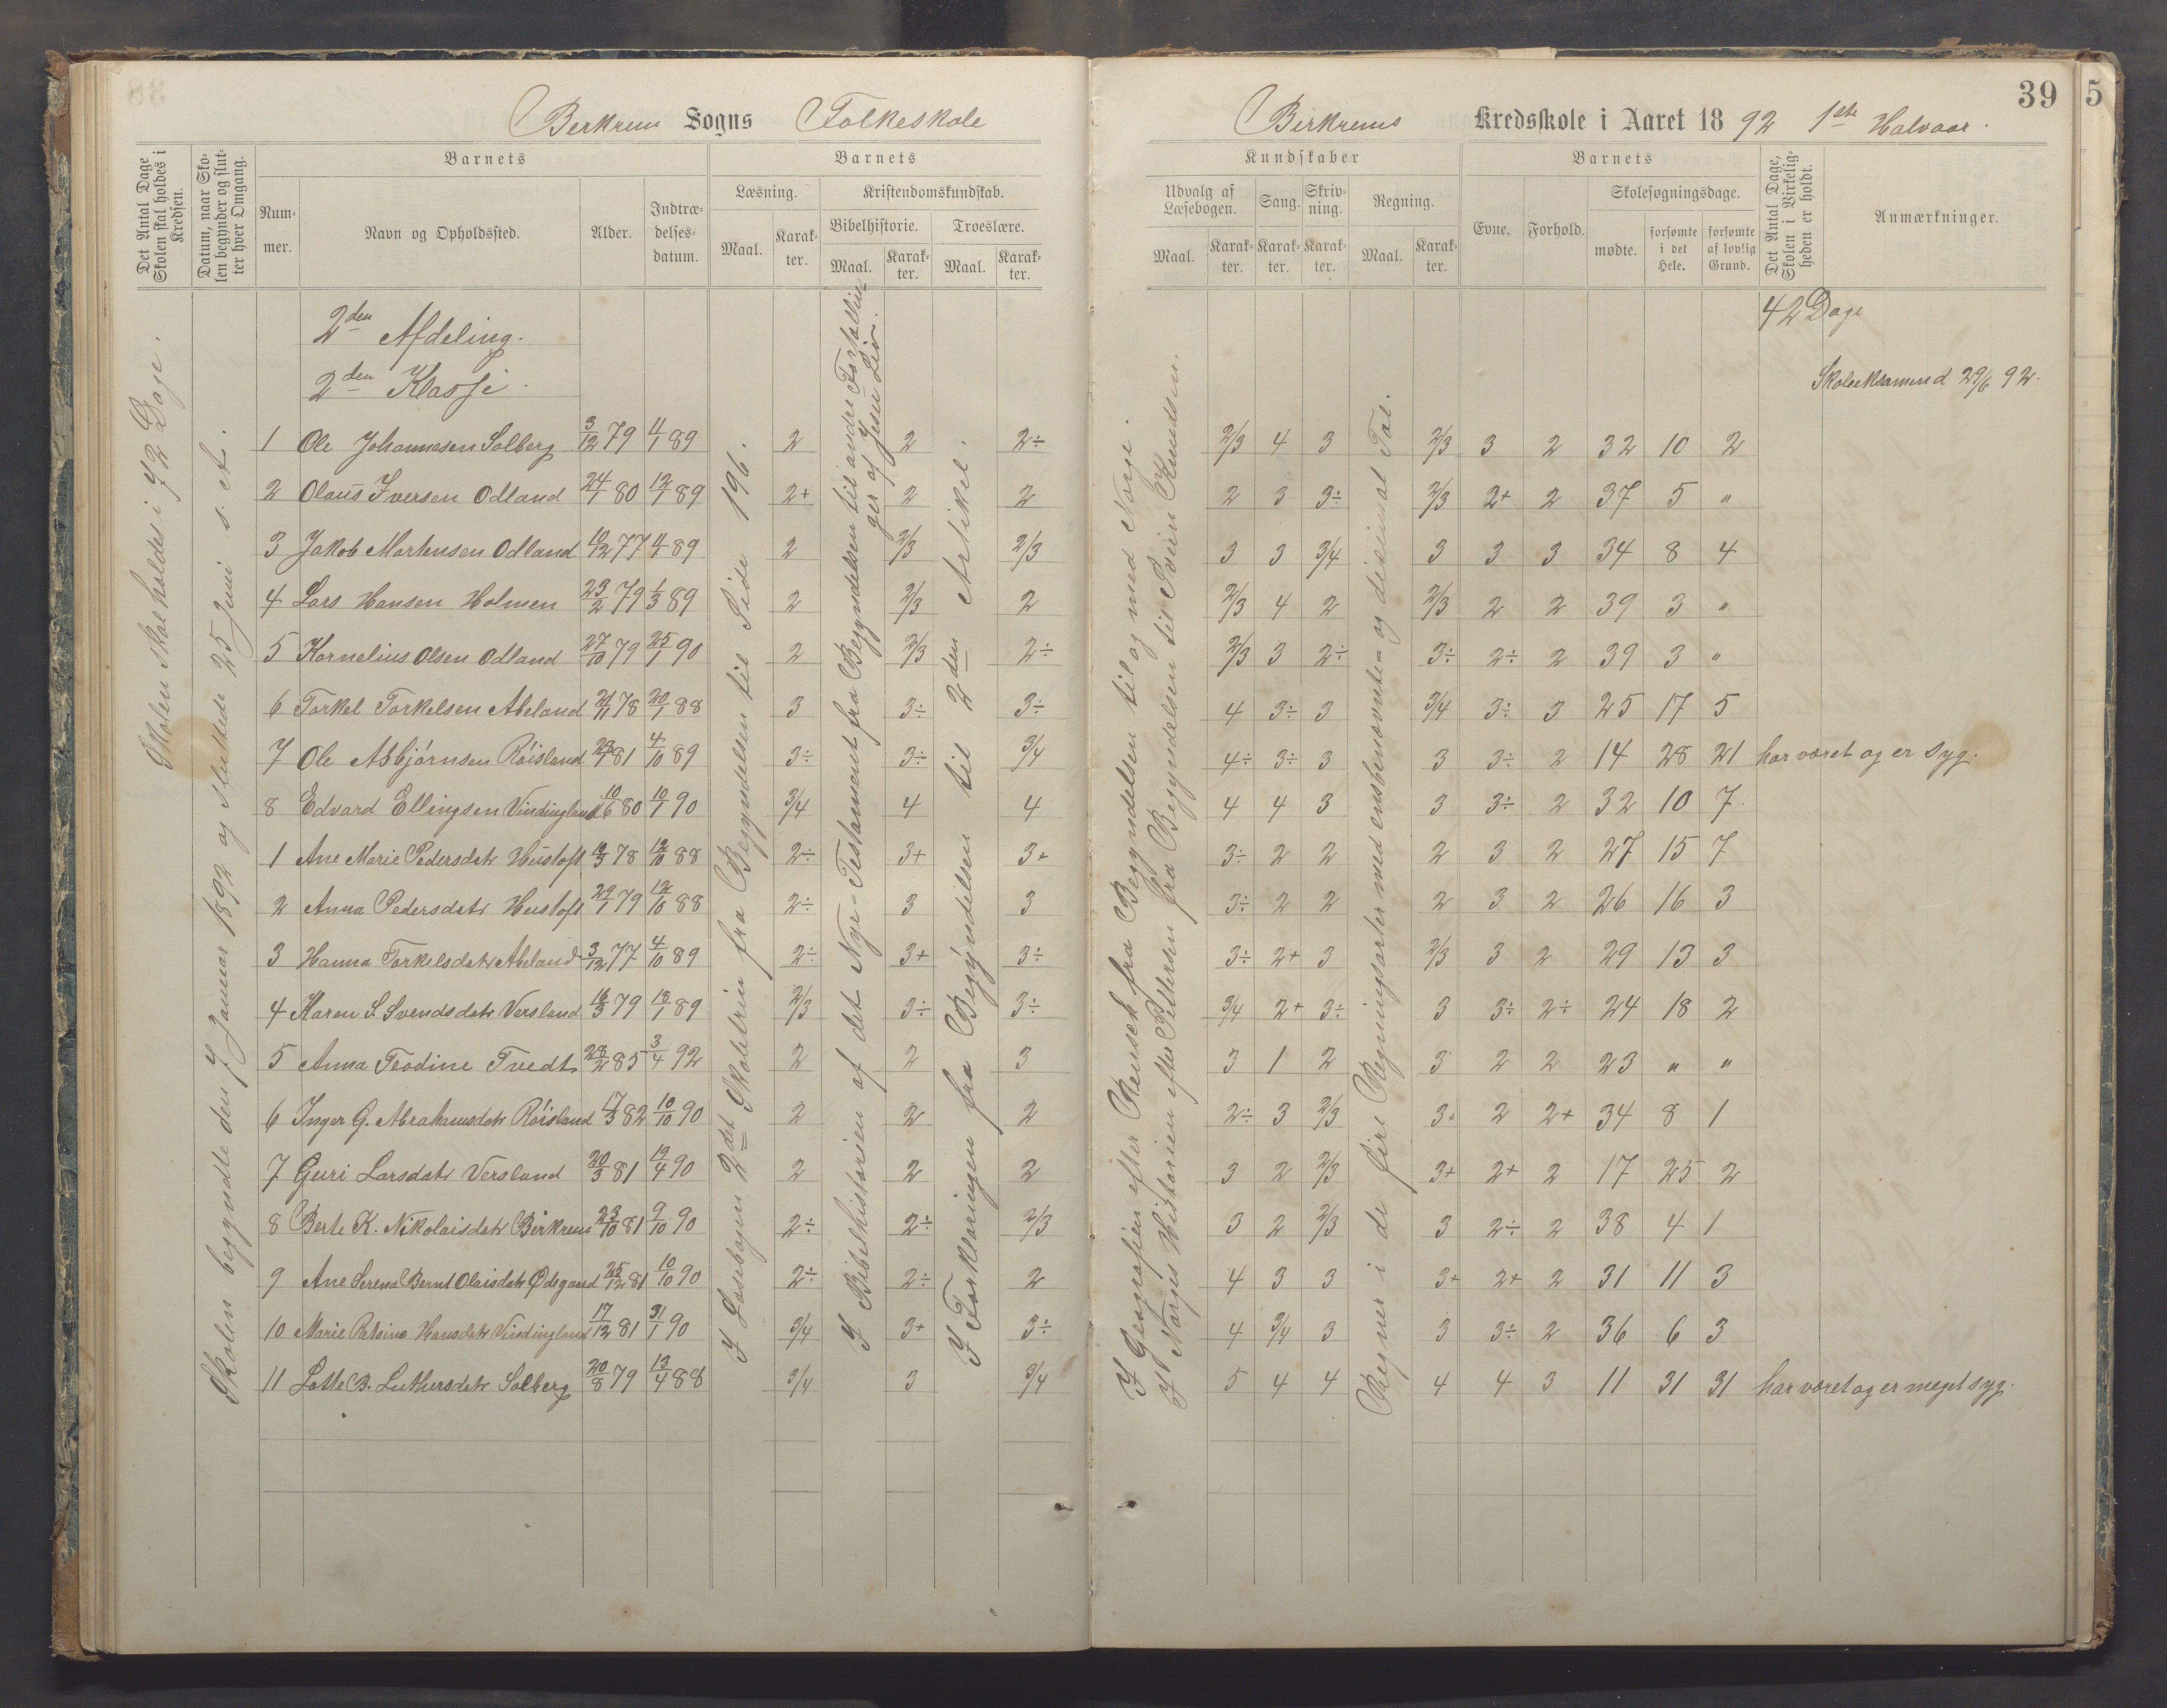 Berkrem Sogns Folkeskole
Det Antal Dage Skolen skal holdes i Kredsen.
Datum, naar Skolen begynder og slutter hver Omgang.
Barnets
Nummer.
Navn og Opholdssted.
Alder.
Indtrædelsesdatum.
Barnets
Læsning.
Maal.
Karakter.
Kristendomskundskab.
Bibelhistorie.
Maal.
Karakter.
Troeslære.
Maal.
Karakter.
Skolen skal holdes i 72 Dage.
Skolen begyndte den 7 Januar 1892 og sluttede 25 Juni s. A.
2den Afdeling.
2den Klasse.
I Læsebogen 2det Skoletrin fra Begyndelsen til Side 196.
I Bibelhistorien af det Nye-Testament fra Begyndelsen til andre Fortællin-
ger af Jesu Liv.
I Forklaringen fra Begyndelsen til 2den Artikel.
1 Ole Johannesen Solberg 3/12 79 4/1 89 2 2 2÷
2 Olaus Iversen Odland 24/1 80 12/1 89 2+ 2 2
3 Jakob Mortensen Odland 10/12 77 4/1 89 2 2/3 2/3
4 Lars Hansen Holmen 23/2 79 1/3 89 2 2/3 2
5 Kornelius Olsen Odland 27/10 79 25/1 90 2 2/3 2÷
6 Torkel Torkelsen Abeland 21/11 78 20/1 88 3 3÷ 3÷
7 Ole Asbjørnsen Røisland 81 4/10 89 3÷ 3÷ 3/4
8 Edvard Ellingsen Vindingland 10/6 80 10/1 90 3/4 4 4
1 Ane Marie Pedersdatr Hustoft 78 12/10 88 2÷ 3+ 3+
2 Anna Pedersdatr Hustoft 29/1 79 12/10 88 2÷ 3 3
3 Hanna Torkelsdatr Abeland 3/12 77 4/10 89 2÷ 3+ 3÷
4 Karen S. Svendsdatr Versland 16/3 79 18/1 89 2/3 3÷ 3÷
5 Anna Teodine Tvedt 28/2 85 3/4 92 2 2 3
6 Inger G. Abrahamsdatr Røisland 17/3 82 10/10 90 2 2 2
7 Guri Larsdatr Versland 20/3 81 19/4 90 2 2 2
8 Berte K. Nikolaisdatr Birkrem 23/10 81 9/10 90 2÷ 2÷ 2/3
9 Ane Serena Bernt Olaisdatr Ødegaard 25/12 81 10/10 90 2÷ 2÷ 2
10 Marie Petsine Hansdatr Vindingland 17/12 81 31/1 90 3/4 3+ 3÷
11 Lotte B. Luthersdatr Solberg 20/8 79 13/4 88 3/4 3 3/4
39 5
Birkrems Kredsskole i Aaret 1892 1ste Halvaar.
Kundskaber
Udvalg af Læsebogen.
Maal.
Karakter.
Sang.
Karakter.
Skrivning.
Karakter.
Regning.
Maal.
Karakter.
Barnets
Evne.
Forhold.
Skolesøgningsdage.
mødte.
forsømte i det Hele.
forsømte af lovlig Grund.
Det Antal Dage, Skolen i Virkeligheden er holdt.
Anmærkninger.
42 Dage
Skoleeksamen d 29/6 92.
I Geografien efter Rensch fra Begyndelsen til og med Norge.
I Norges Historien efter Petersen fra Begyndelsen til Svein Knudsen.
Regner i de fire Regningsarter med ensbenævnte- og desimal Tal.
2/3 4 3 2/3 3 2 32 10 2
2 3 3÷ 2/3 2+ 2 37 5 "
3 3 3/4 3 3 3 34 8 4
2/3 4 2 2/3 2 2 39 3 "
2/3 3 2÷ 3÷ 2÷ 2 39 3 "
4 3÷ 3 3/4 3÷ 3 25 17 5
4÷ 3÷ 3 3 3÷ 2 14 28 21 har været og er syg.
4 4 3 3 3÷ 2 32 10 7.
3÷ 2 2 2 3 2 27 15 7
3÷ 2 2 2 3 2 26 16 3
3÷ 2+ 3 2/3 3 2 29 13 3
3/4 2+ 3÷ 3 3÷ 2÷ 24 18 2
3 1 2 3 2 2 23 " "
2÷ 3 2/3 3+ 2 2+ 34 8 1
3 2 2/3 3+ 2+ 2 17 25 2
3 2 2/3 3 2÷ 2 38 4 1
4 3 3 3+ 2+ 2 31 11 3
4 3/4 3 3 3÷ 2 36 6 3
5 4 4 4 4 3 11 31 31 har været og er meget syg.